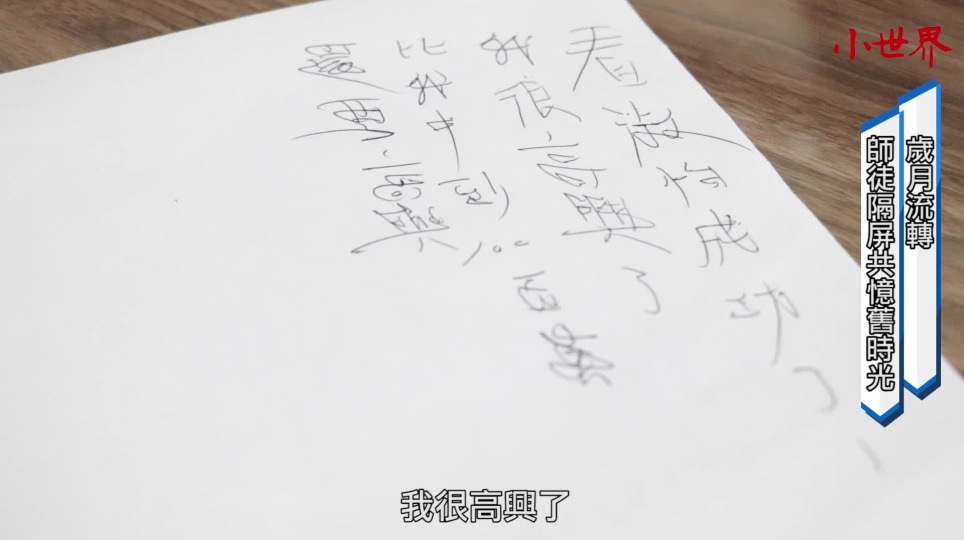 小世界
歲月流轉
師徒隔屏共憶舊時光
看你成功了、
我很高興了
比我中100
高興
我很高興了